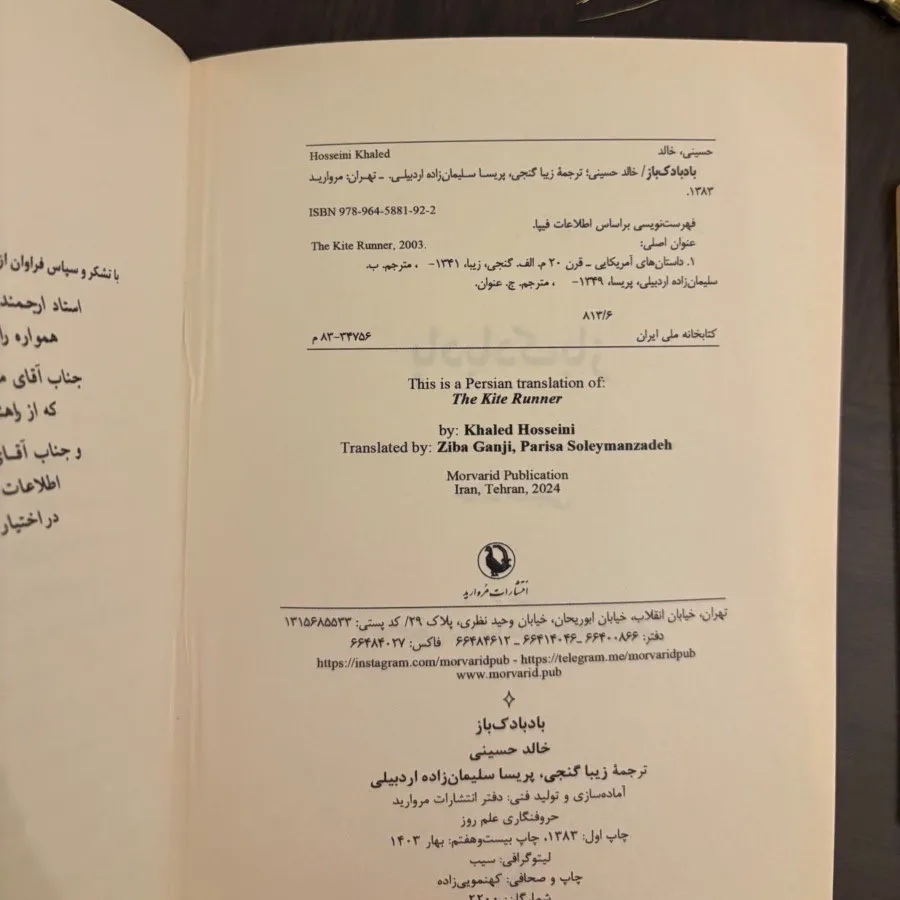 با تشکر و سپاس فراوان از
استاد ارجمند
همواره
جناب آقای
که از
و جناب
اطلاعات
در اختیار
حسینی، خالد
Hosseini Khaled
بادبادک‌باز / خالد حسینی؛ ترجمهٔ زیبا گنجی، پریسا سلیمان‌زاده اردبیلی. ـ تهران: مروارید
۱۳۸۳.
ISBN 978-964-5881-92-2
فهرست‌نویسی براساس اطلاعات فیپا.
عنوان اصلی:
The Kite Runner, 2003.
۱. داستان‌های آمریکایی ـ قرن ۲۰ م. الف. گنجی، زیبا، ۱۳۴۱- ، مترجم. ب.
سلیمان‌زاده اردبیلی، پریسا، ۱۳۴۹- ، مترجم. ج. عنوان.
۸۱۳/۶
کتابخانه ملی ایران
۸۳-۳۴۷۵۶ م
This is a Persian translation of:
The Kite Runner
by: Khaled Hosseini
Translated by: Ziba Ganji, Parisa Soleymanzadeh
Morvarid Publication
Iran, Tehran, 2024
انتشارات مروارید
تهران، خیابان انقلاب، خیابان ابوریحان، خیابان وحید نظری، پلاک ۲۹/ کد پستی: ۱۳۱۵۶۸۵۵۳۳
دفتر: ۶۶۴۰۰۸۶۶ ـ ۶۶۴۱۴۰۴۶ ـ ۶۶۴۸۴۶۱۲ فاکس: ۶۶۴۸۴۰۲۷
https://instagram.com/morvaridpub - https://telegram.me/morvaridpub
www.morvarid.pub
بادبادک‌باز
خالد حسینی
ترجمهٔ زیبا گنجی، پریسا سلیمان‌زاده اردبیلی
آماده‌سازی و تولید فنی: دفتر انتشارات مروارید
حروفنگاری علم روز
چاپ اول: ۱۳۸۳، چاپ بیست‌وهفتم: بهار ۱۴۰۳
لیتوگرافی: سیب
چاپ و صحافی: کهنمویی‌زاده